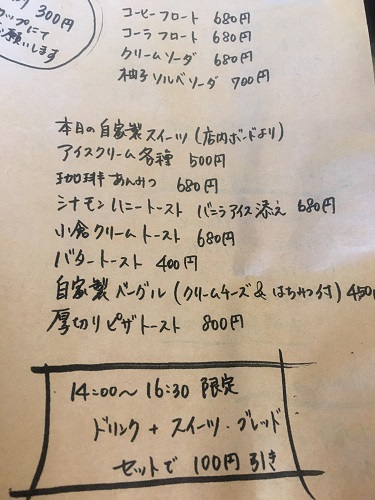 300円
カップにて
お願いします
コーヒーフロート 680円
コーラフロート 680円
クリームソーダ 680円
柚子ソルベソーダ 700円
本日の自家製スイーツ(店内ボードより)
アイスクリーム各種 500円
珈琲あんみつ 680円
シナモンハニートースト バニラアイス添え 680円
小倉クリームトースト 680円
バタートースト 400円
自家製ベーグル(クリームチーズ&はちみつ付) 450
厚切りピザトースト 800円
14:00〜16:30 限定
ドリンク + スイーツ・ブレッド
セットで 100円引き